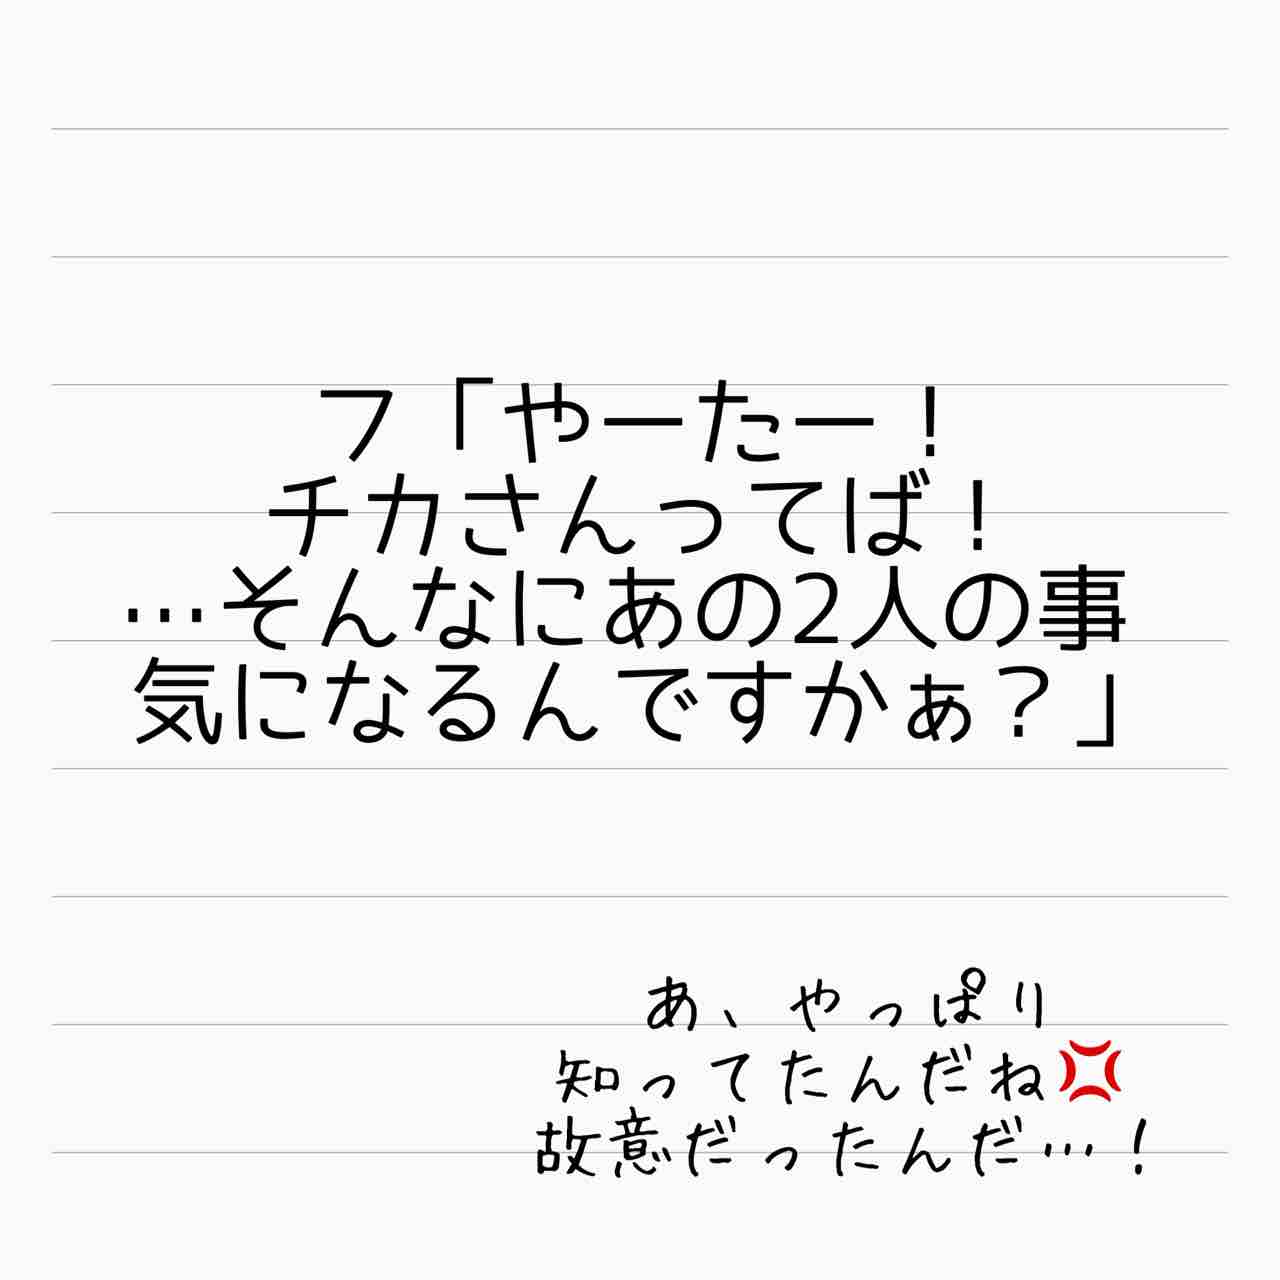 フ「やーたー！
チカさんってば！
…そんなにあの2人の事
気になるんですかぁ？」
あ、やっぱり
知ってたんだね💢
故意だったんだ…！